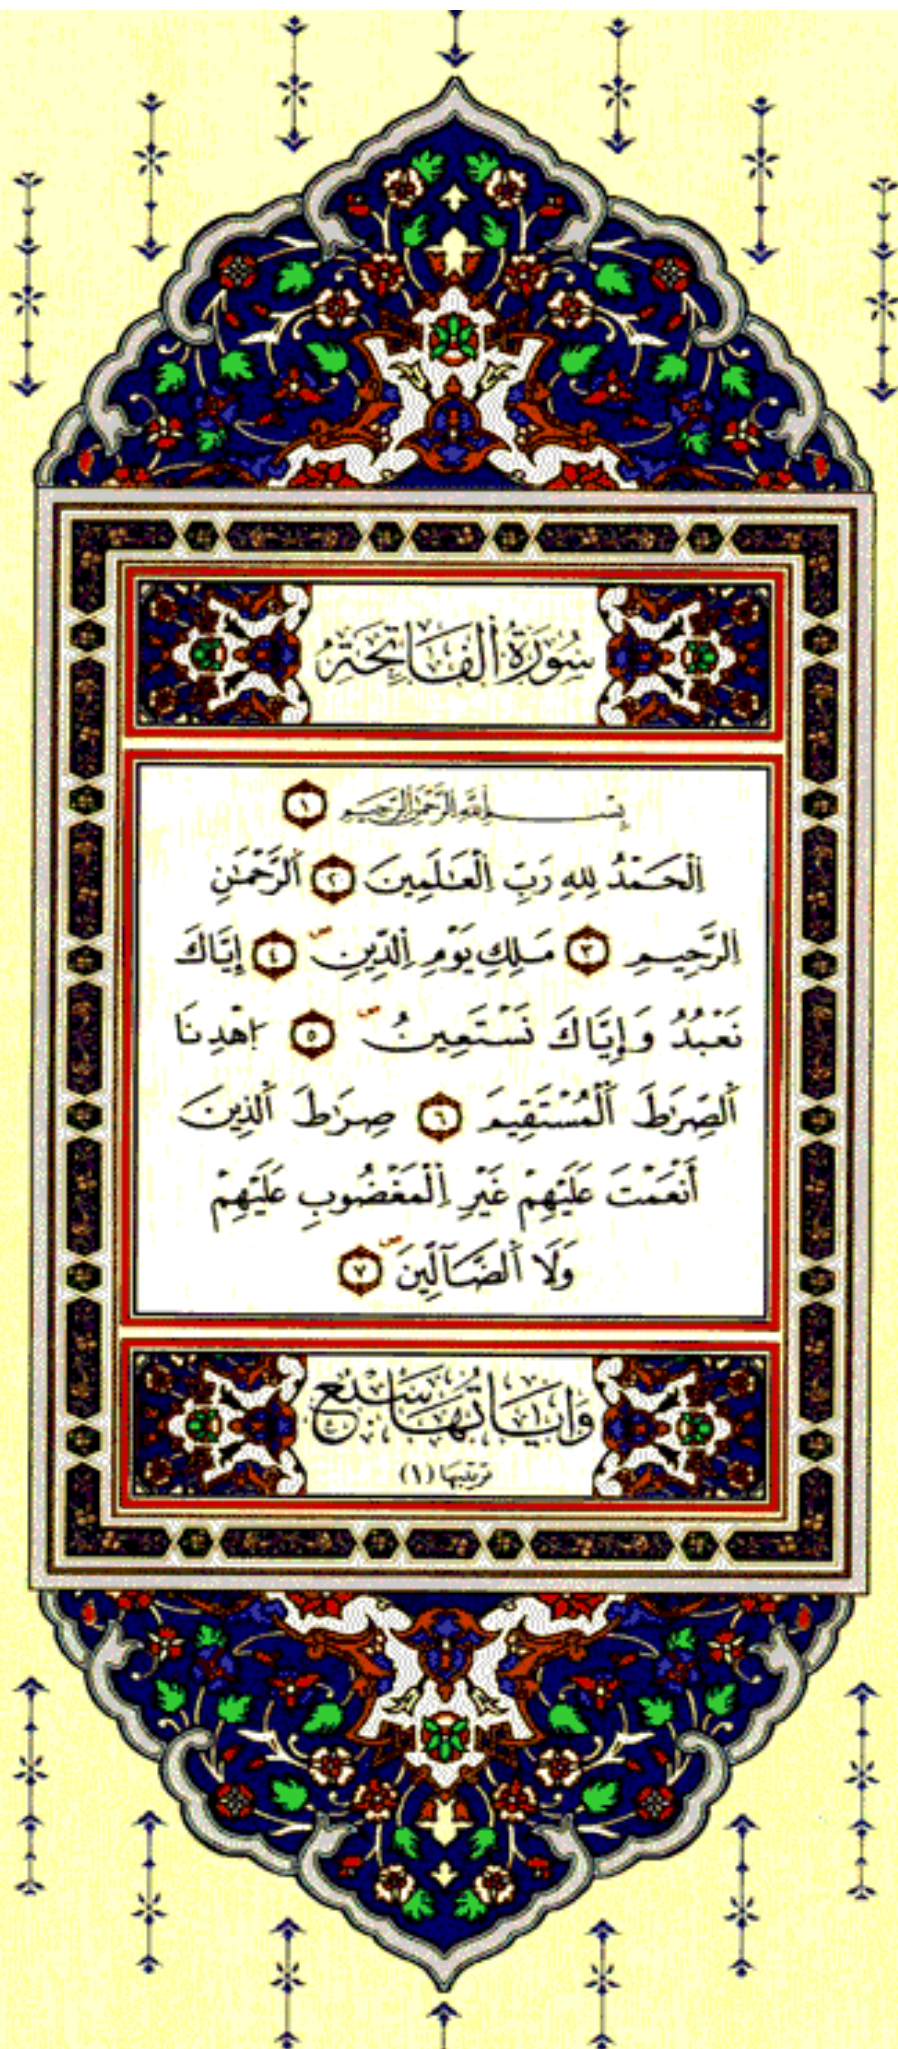 سُورَةُ ٱلْفَاتِحَةِ
بِسْمِ ٱللَّهِ ٱلرَّحْمَٰنِ ٱلرَّحِيمِ ١
اِ۬لْحَمْدُ لِلهِ رَبِّ اِ۬لْعَٰلَمِينَ ٢ اَ۬لرَّحْمَٰنِ
اِ۬لرَّحِيمِ ٣ مَلِكِ يَوْمِ اِ۬لدِّينِ ۖ ٤ إِيَّاكَ
نَعْبُدُ وَإِيَّاكَ نَسْتَعِينُ ۖ ٥ اِ۪هْدِنَا
اَ۬لصِّرَٰطَ اَ۬لْمُسْتَقِيمَ ٦ صِرَٰطَ اَ۬لذِينَ
أَنْعَمْتَ عَلَيْهِمْ غَيْرِ اِ۬لْمَغْضُوبِ عَلَيْهِمْ
وَلَا اَ۬لضَّآلِّينَ ۖ ٧
وَءَايَاتُهَا سَبْعٌ
ترتيبها (١)